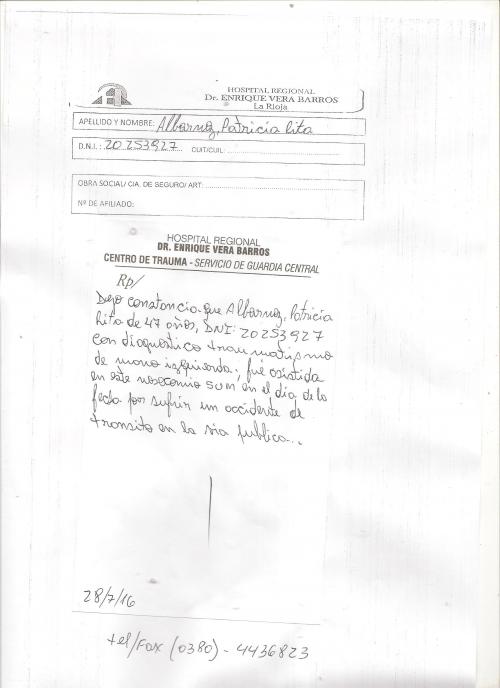 HOSPITAL REGIONAL
Dr. ENRIQUE VERA BARROS
La Rioja
APELLIDO Y NOMBRE: Albarnoz, Patricia Rita
D.N.I.: 20253927 CUIT/CUIL:
OBRA SOCIAL/ CIA. DE SEGURO/ ART:
Nº DE AFILIADO:
HOSPITAL REGIONAL
DR. ENRIQUE VERA BARROS
CENTRO DE TRAUMA - SERVICIO DE GUARDIA CENTRAL
Rp/
Dejo constancia que Albarnoz, Patricia
Rita de 47 años, DNI: 20253927
con diagnóstico traumatismo
de mano izquierda, fue asistida
en este nosocomio en el día de la
fecha por sufrir un accidente de
transito en la via publica..
28/7/16
tel/Fax (0380) - 4436823